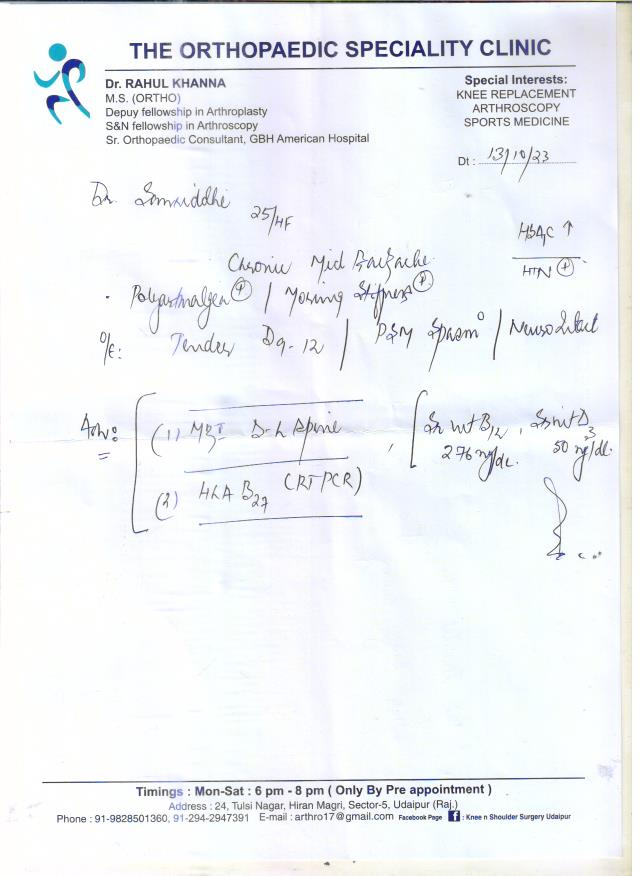 THE ORTHOPAEDIC SPECIALITY CLINIC
Dr. RAHUL KHANNA
M.S. (ORTHO)
Depuy fellowship in Arthroplasty
S&N fellowship in Arthroscopy
Sr. Orthopaedic Consultant, GBH American Hospital
Special Interests:
KNEE REPLACEMENT
ARTHROSCOPY
SPORTS MEDICINE
Dt : 13/10/23
Dr. Somriddhi 25/F
HbA1C ↑
HTN (+)
Chronic Mid Backache
Polyarthralgea (+) / Morning Stiffness (+)
O/E: Tender D9-12 / PSM Spasm / Neuro Intact
Adv:
(1) MRI D-L Spine , Sr Vit B12 , Sr Vit D3
276 ng/dl. 50 ng/dl.
(2) HLA B27 (RTPCR)
Timings : Mon-Sat : 6 pm - 8 pm ( Only By Pre appointment )
Address : 24, Tulsi Nagar, Hiran Magri, Sector-5, Udaipur (Raj.)
Phone : 91-9828501360, 91-294-2947391 E-mail : arthro17@gmail.com Facebook Page f : Knee n Shoulder Surgery Udaipur